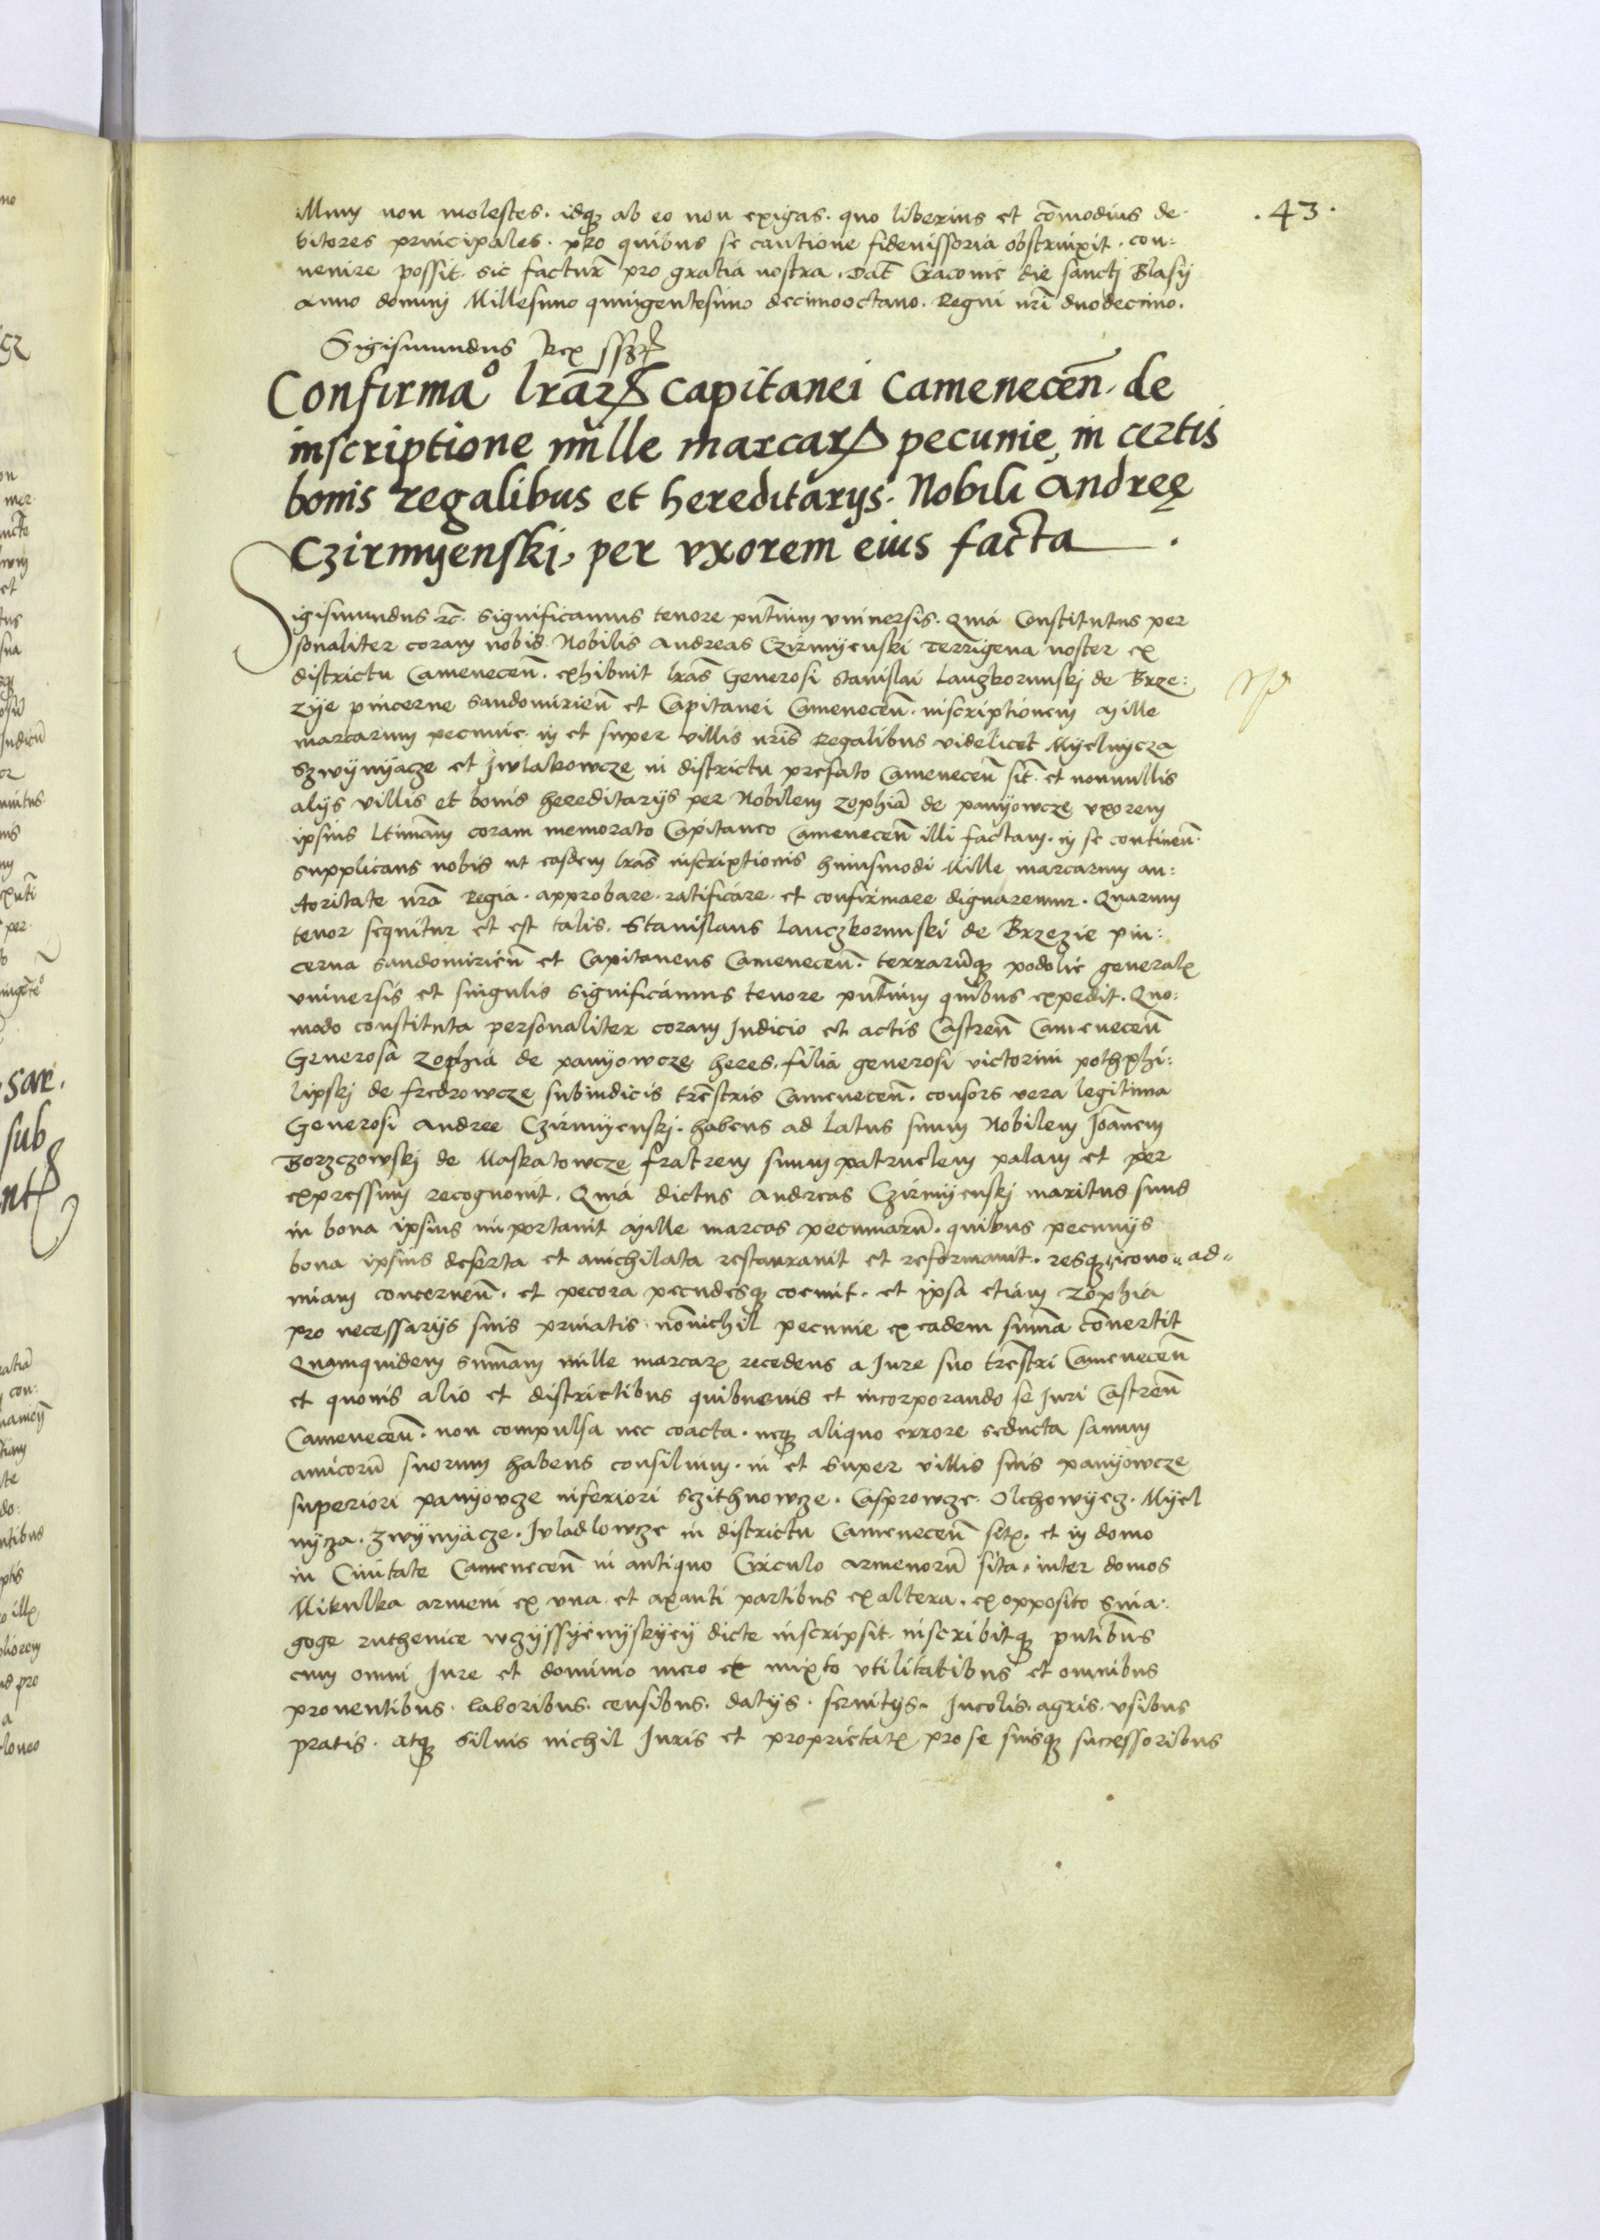 .43.
illum non molestes. idq₃ ab eo non exigas. quo liberius et cōmodius de-
bitores principales. pro quibus se cautione fideiussoria obstrinxit. con:
uenire possit. sic facturꝰ pro gratia nostra. Dat̄ Cracouie die sanctj Blasij
anno dominj Millesimo quingentesimo decimooctauo. Regni nr̄i duodecimo.
Sigismundus Rex sszt
Confirmaᵒ lr̄arꝝ Capitanei Camenecen̄ de
inscriptione mille marcarꝝ pecunie in certis
bonis regalibus et hereditarijs. Nobili Andreę
Czirmyenskj, per vxorem eius facta.
Sigismundus rc̄. significamus tenore pn̄tium vniuersis. Quia Constitutus per
sonaliter coram nobis Nobilis Andreas Czirmyenski Terrigena noster ex
districtu Camenecen̄. exhibuit lr̄as Generosi Stanislai Lanczkorunskj de Brze:
zye pincerne Sandomirien̄ et Capitanei Camenecen̄. inscriptionem Mille
marcarum pecunie. in et super villis nr̄is Regalibus videlicet Myelnycza
Szwynyacze et Jwlakowcze in districtu prefato Camenecen̄ sit̄. et nonnullis
alijs villis et bonis hereditarijs per Nobilem Zophiā de panyowcze vxorem
ipsius Ltimām coram memorato Capitaneo Camenecen̄ illi factam. in se continen̄.
supplicans nobis ut easdem lr̄as inscriptionis huiusmodi Mille marcarum au:
ctoritate nr̄a Regia. approbare. ratificare. et confirmare dignaremur. Quarum
tenor sequitur et est talis. Stanislaus Lanczkorunski de Brzezie pin:
cerna Sandomirien̄ et Capitaneus Camenecen̄. terrarūq₃ podolie generalꝭ
vniuersis et singulis significamus tenore pn̄tium quibus expedit. Quo:
modo constituta personaliter coram Judicio et actis Castren̄ Camenecen̄
Generosa Zophia de panyowcze heres. filia generosi victorini pothphi:
lipskj de fredrowcze subiudicis trēstris Camenecen̄. consors vera legitima
Generosi Andree Czirmyenskj. habens ad latus suum Nobilem Joānem
Borzczowskj de Maskatowcze fratrem suum patruelem palam et per
expressum recognouit. Quia dictus Andreas Czirmyenskj maritus suus
in bona ipsius importauit Mille marcas pecuniarū. quibus pecunijs
bona ipsius deserta et anichilata restaurauit et reformauit. resq₃ icono„ ad„
miam concernen̄. et pecora pecudesq₃ coemit. et ipsa etiam Zophia
pro necessarijs suis priuatis nōnichil pecunie ex eadem suma cōuertit
Quamquidem sumām mille marcarꝝ recedens a Jure suo trēstri Camenecen̄
et quouis alio et districtibus quibusuis et incorporando se Juri Castren̄
Camenecen̄. non compulsa nec coacta. neq₃ aliquo errore seducta sanum
amicorū suorum habens consilium. in et super villis suis panyowcze
superiori panyovcze inferiori Sczithnowcze. Casprowcze. Olchowyecz. Myel
nycza. Zwynyacze. Jvladlowcze in districtu Camenecen̄ sitꝭ. et in domo
in Ciuitate Camenecen̄ in antiquo Circulo Armenorū sita. inter domos
Mikulka armeni ex vna et axanti partibus ex altera. ex opposito Sina:
goge ruthenice wzyssyemyskyey dicte inscripsit. inscribitq₃ pn̄tibus
cum omni Jure et dominio mero et mixto vtilitatibus et omnibus
prouentibus. laboribus. censibus. datijs. seruitijs. Incolis. agris. vsibus
pratis. atq₃ siluis nichil Juris et proprietatꝭ pro se suisq₃ successoribus